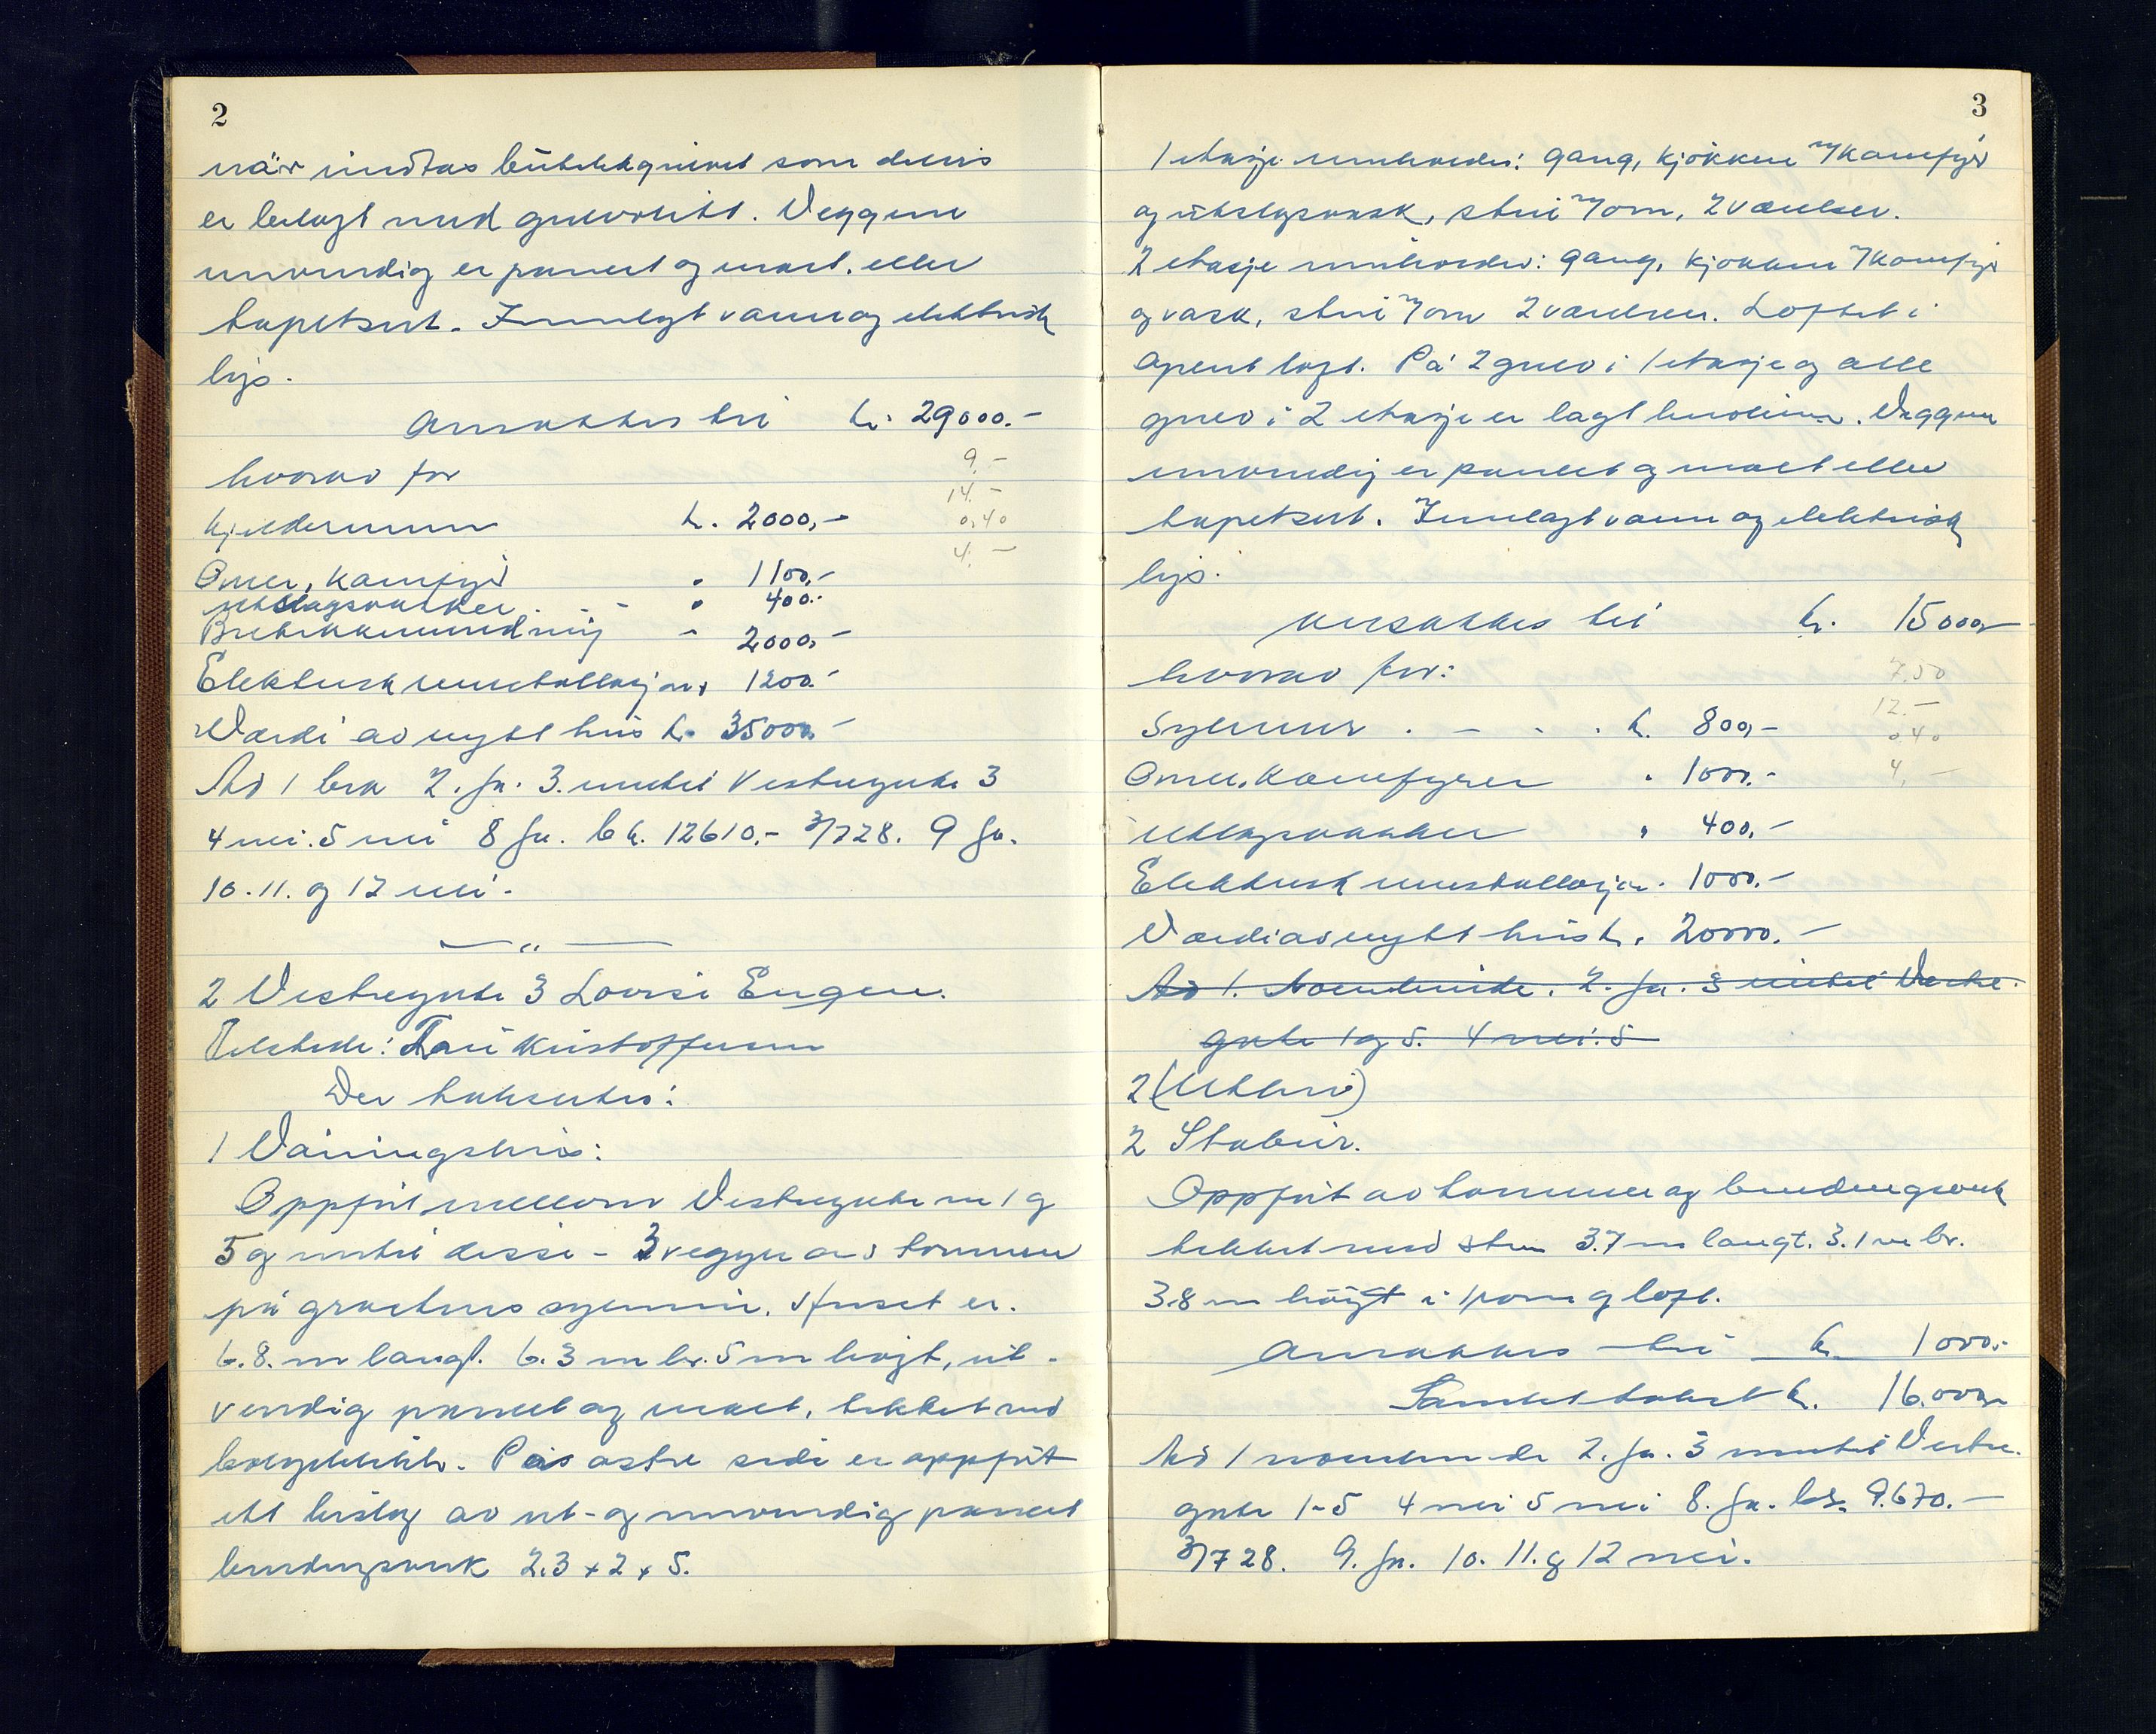 2
når undtas butikkgulvet som delvis
er belagt med gulvbelegg. Veggene
innvendig er panelt og malt eller
tapetsert. Innlagt vann og elektrisk
lys.
Ansettes til kr. 29000.-
9.-
hvorav for
14.-
Kjeldermur kr. 2000,-
0,40
4.-
Ovner, Komfyr " 1100,-
Utslagsvasker . - - " 400.-
Butikkinnredning - 2000,-
Elektrisk innstallasjon 1200.-
Verdi av nytt hus kr. 35000.-
Ad 1 bra 2. ja. 3. inntil Vestregate 3
4 nei. 5 nei 8 ja. b kr. 12610.- 3/7 28. 9 ja.
10. 11. og 12 nei.
— " —
2 Vestregate 3 Lovise Engen.
Tilstede: Kristoffersen
Der takseres:
1 Våningshus:
Oppført mellem Vestregate nr 1 og
5 og inntil disse - 3 vegger av tømmer
på gråstens syllmur. Huset er.
6.8. m langt. 6.3 m br. 5 m høgt, ut-
vendig panelt og malt, tekket med
bølgeblikk. På østre side er oppført
ett bislag av ut- og innvendig panelt
bindingsverk 2.3 x 2 x 5.
3
1 etasje inneholder: gang, kjøkken m/komfyr
og utslagsvask, stue m/ovn, 2 værelser.
2 etasje inneholder: gang, kjøkken m/komfyr
og vask, stue m/ovn 2 værelser. Loftet i
åpent loft. På 2 gulv i 1 etasje og alle
gulv i 2 etasje er lagt linoleum. Veggene
innvendig er panelt og malt eller
tapetsert. Innlagt vann og elektrisk
lys.
Ansettes til kr. 15000,-
hvorav for:
7.50
12.-
Syllmur . - - . kr. 800,-
0.40
Ovner. Komfyrer " 1000.-
4.-
Utslagsvasker " 400,-
Elektrisk innstallasjon. 1000.-
Verdi av nytt hus kr. 20000.-
Ad 1. Noenlunde. 2. ja. 3 inntil Vestre
gate 1 og 5. 4 nei. 5
2 (Uthus)
2 Stabur.
Oppført av tømmer og bindingsverk
tekket med sten 3.7 m langt. 3.1 m br.
3.8 m høgt i 1 rom og loft.
Ansettes til kr. 1000.-
Samlet takst kr. 16.000,-
Ad 1 noenlunde 2. ja. 3 inntil Vestre
gate 1-5 4 nei 5 nei 8. ja. b kr. 9.670.-
3/7 28. 9. ja. 10. 11. og 12 nei.